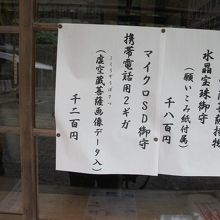 水晶宝珠御守
(願いこみ紙付属)
千八百円
マイクロSD御守
携帯電話用2ギガ
(虚空蔵菩薩画像データ入)
千二百円